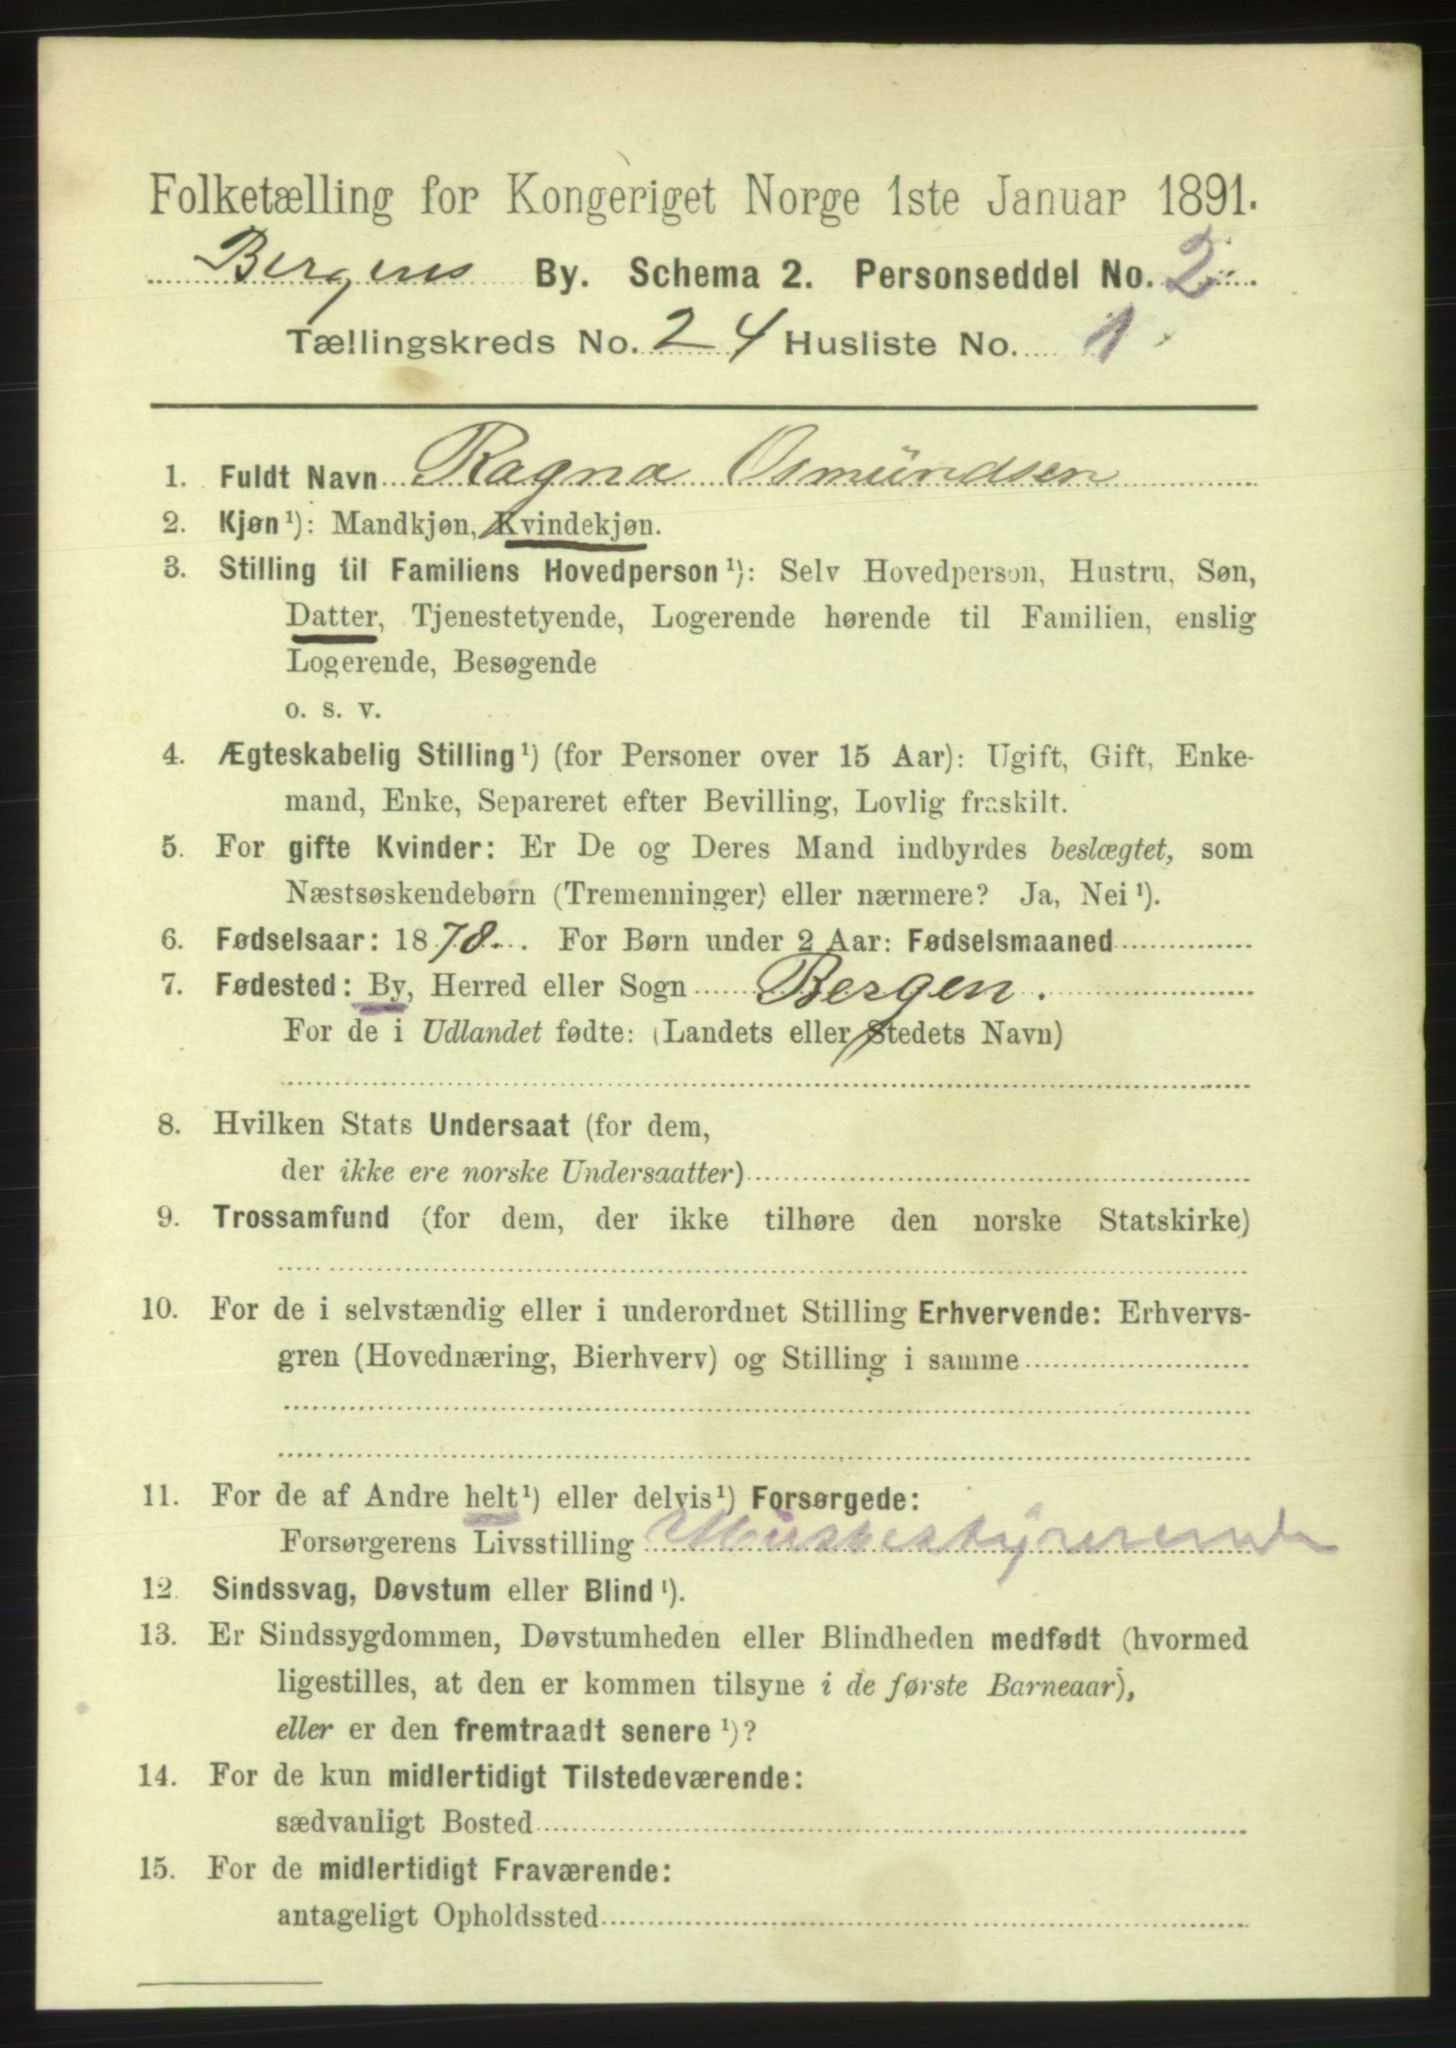 Folketælling for Kongeriget Norge 1ste Januar 1891.
Bergens By. Schema 2. Personseddel No. 2
Tællingskreds No. 24 Husliste No. 1
1. Fuldt Navn Ragna Osmundsen
2. Kjøn¹): Mandkjøn, Kvindekjøn.
3. Stilling til Familiens Hovedperson¹): Selv Hovedperson, Hustru, Søn,
Datter, Tjenestetyende, Logerende hørende til Familien, enslig
Logerende, Besøgende
o. s. v.
4. Ægteskabelig Stilling¹) (for Personer over 15 Aar): Ugift, Gift, Enke-
mand, Enke, Separeret efter Bevilling, Lovlig fraskilt.
5. For gifte Kvinder: Er De og Deres Mand indbyrdes beslægtet, som
Næstsøskendebørn (Tremenninger) eller nærmere? Ja, Nei¹).
6. Fødselsaar: 1878. For Børn under 2 Aar: Fødselsmaaned
7. Fødested: By, Herred eller Sogn Bergen.
For de i Udlandet fødte: (Landets eller Stedets Navn)
8. Hvilken Stats Undersaat (for dem,
der ikke ere norske Undersaatter)
9. Trossamfund (for dem, der ikke tilhøre den norske Statskirke)
10. For de i selvstændig eller i underordnet Stilling Erhvervende: Erhvervs-
gren (Hovednæring, Bierhverv) og Stilling i samme
11. For de af Andre helt¹) eller delvis¹) Forsørgede:
Forsørgerens Livsstilling
12. Sindssvag, Døvstum eller Blind¹).
13. Er Sindssygdommen, Døvstumheden eller Blindheden medfødt (hvormed
ligestilles, at den er kommen tilsyne i de første Barneaar),
eller er den fremtraadt senere¹)?
14. For de kun midlertidigt Tilstedeværende:
sædvanligt Bosted
15. For de midlertidigt Fraværende:
antageligt Opholdssted